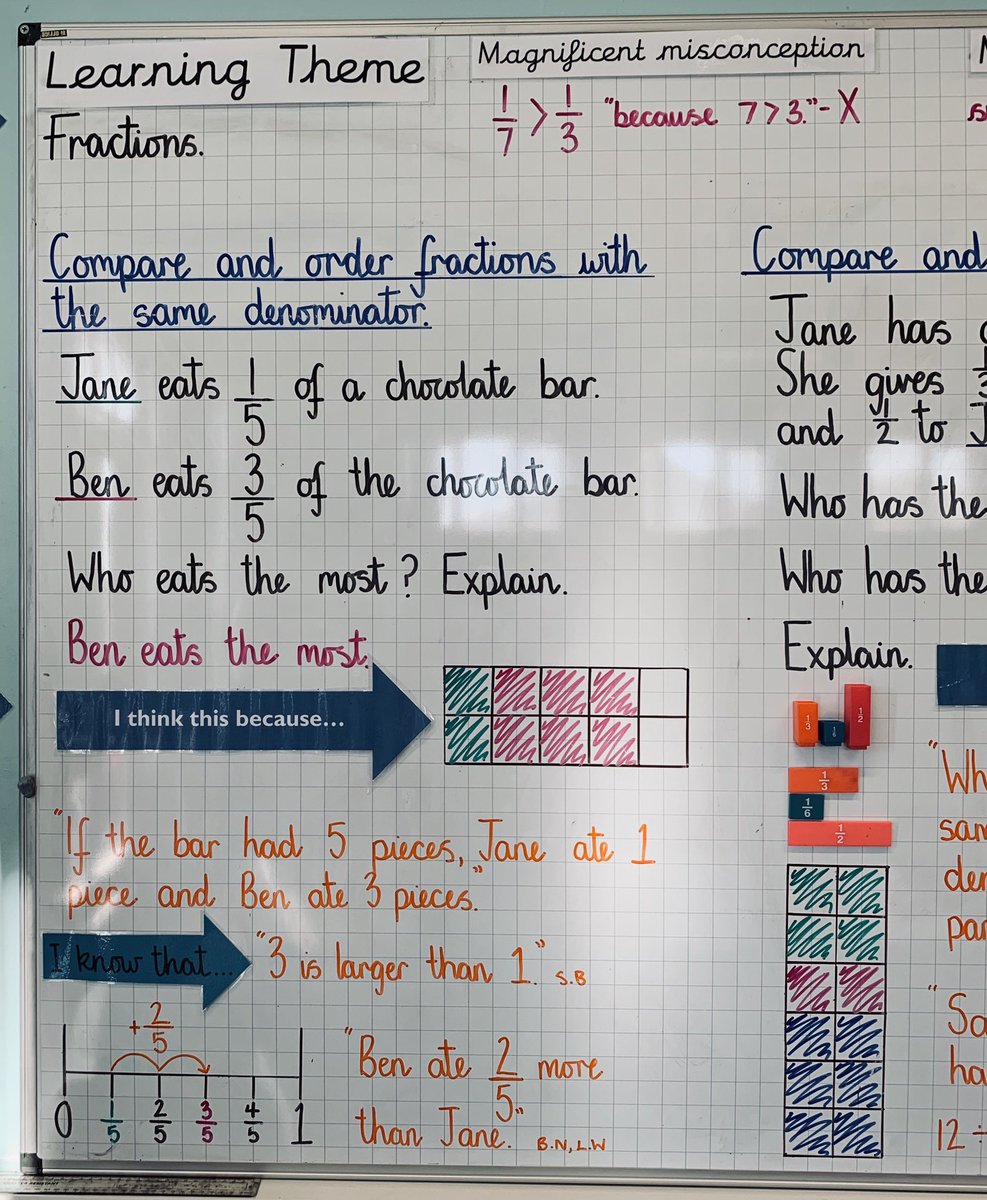 Learning Theme
Fractions.
Magnificent misconception
1/7 > 1/3 "because 7 > 3."- X
Compare and order fractions with
the same denominator.
Jane eats 1/5 of a chocolate bar.
Ben eats 3/5 of the chocolate bar.
Who eats the most? Explain.
Ben eats the most.
I think this because...
"If the bar had 5 pieces, Jane ate 1
piece and Ben ate 3 pieces."
I know that... "3 is larger than 1." S.B
+2/5
0 1/5 2/5 3/5 4/5 1
"Ben ate 2/5 more
than Jane." B.N, L.W
Compare and
Jane has
She gives
and 1/2 to
Who has the
Who has the
Explain.
1/3 1/6 1/2
1/3
1/6
1/2
"Wh
sam
den
par
"Sa
ha
12 ÷